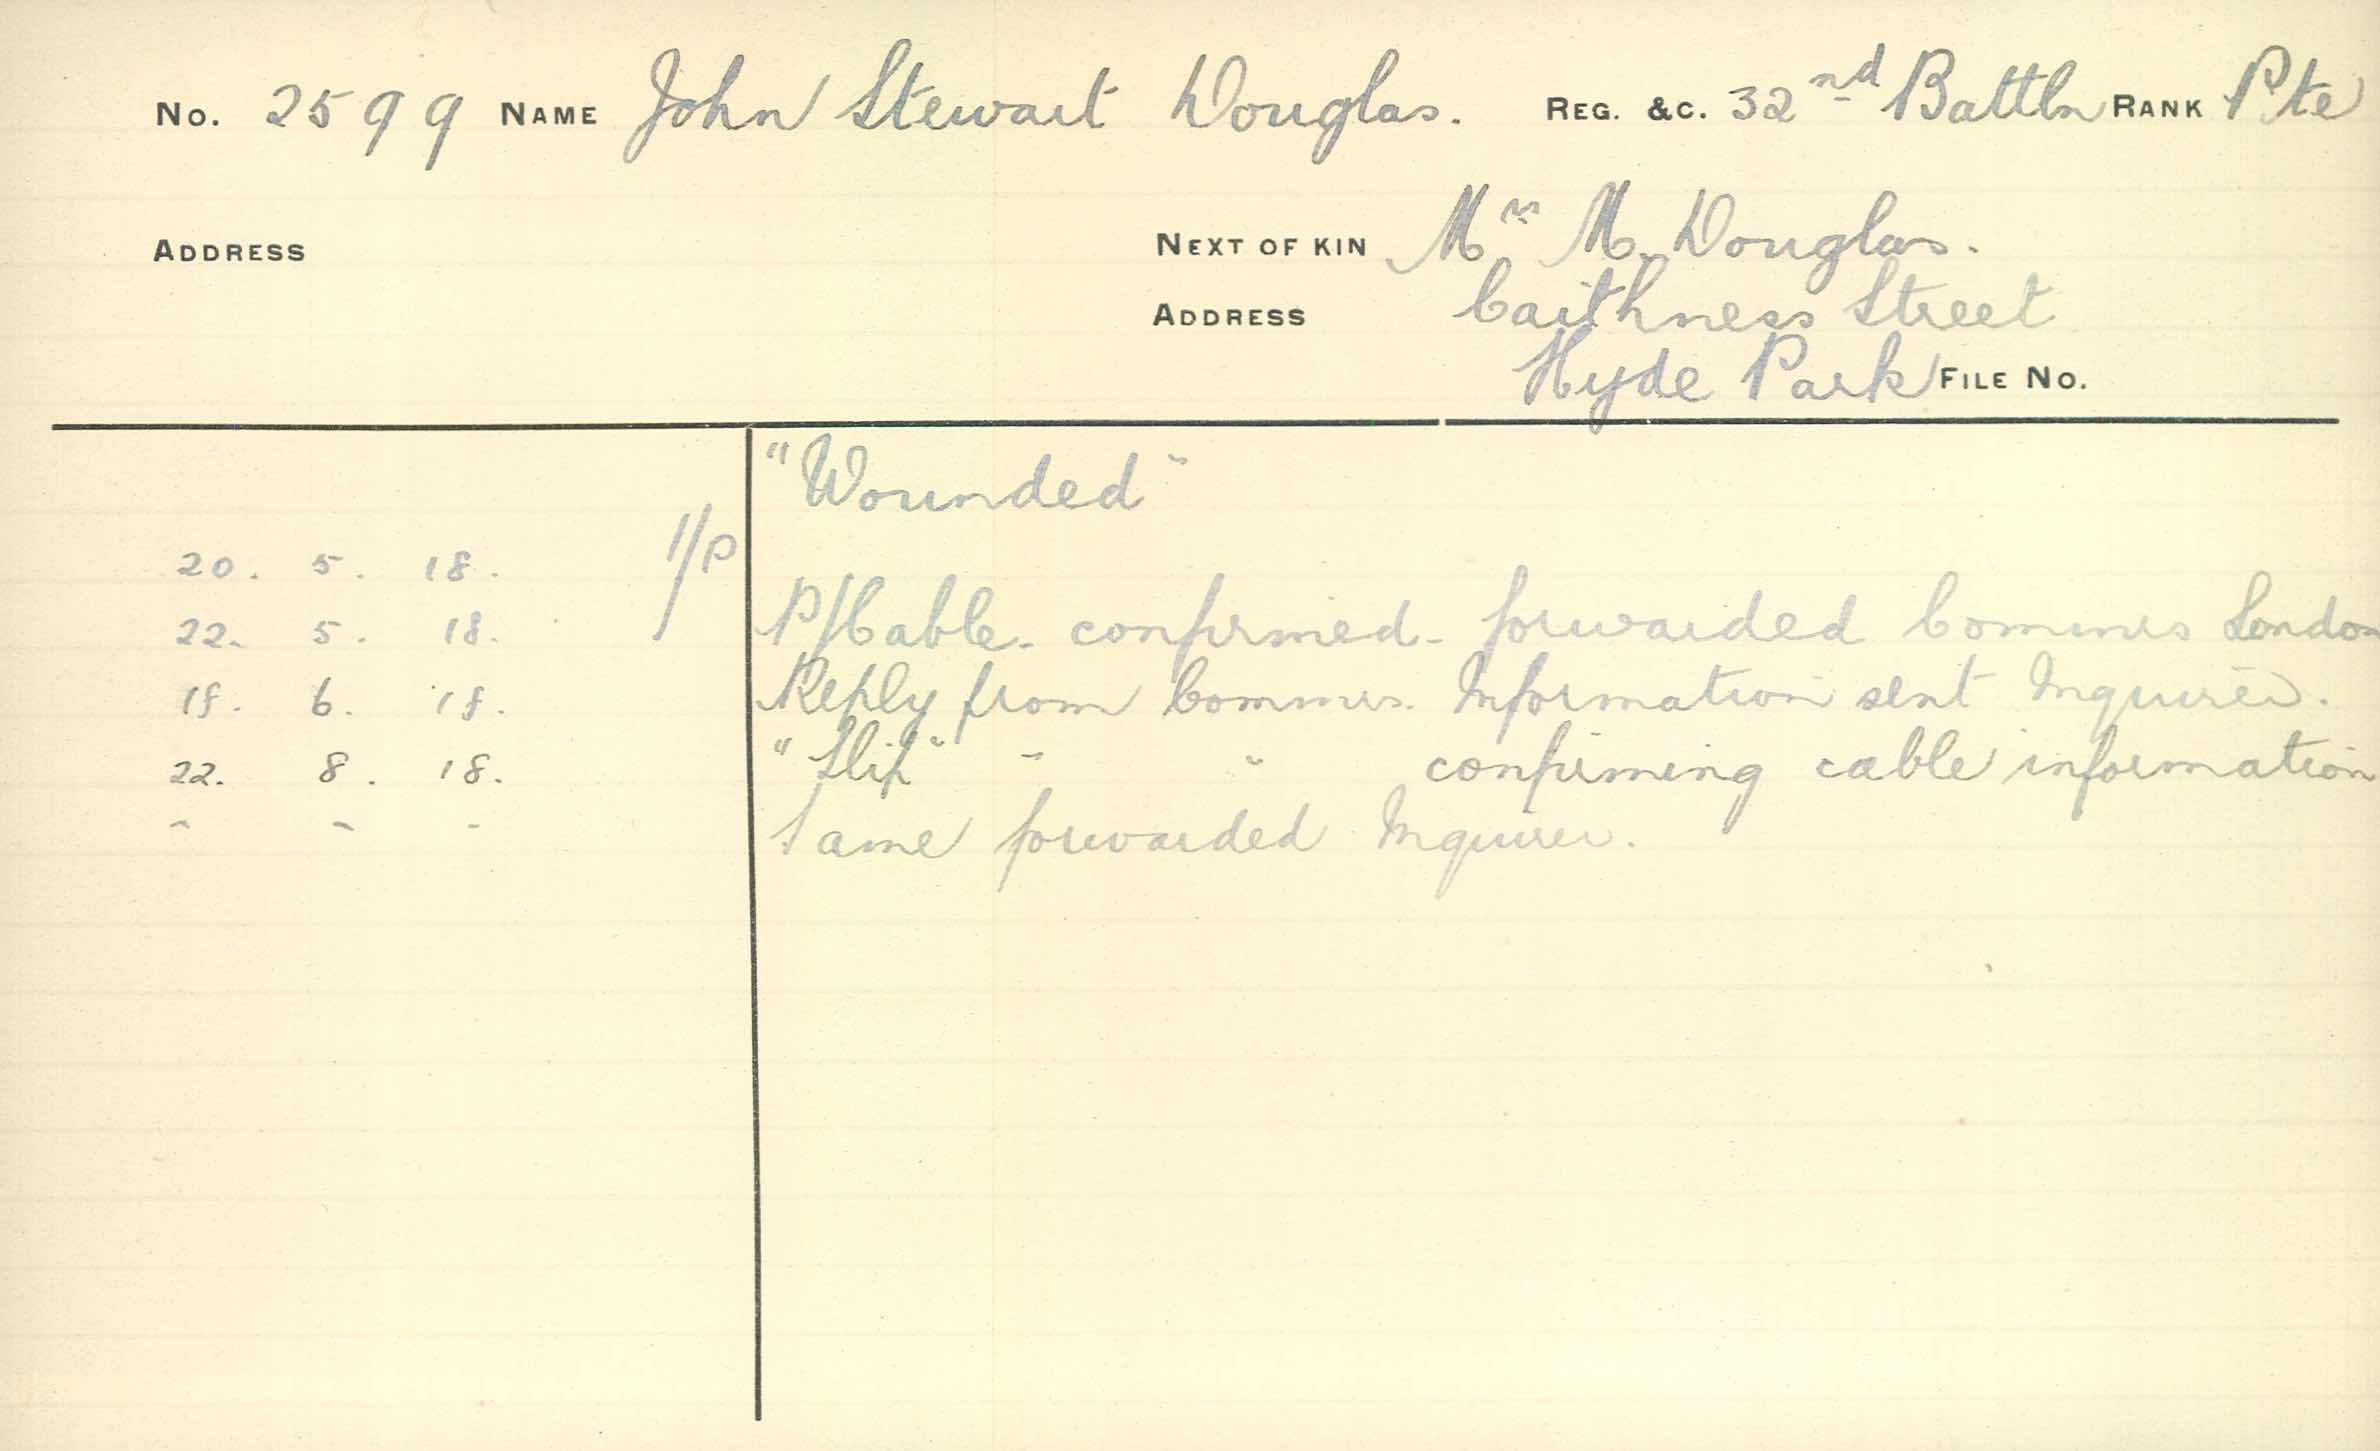 No. 2599 NAME John Stewart Douglas. REG. &C. 32nd Battln RANK Pte
ADDRESS NEXT OF KIN Mrs M. Douglas.
ADDRESS Caithness Street
Hyde Park FILE No.
"Wounded"
20. 5. 18. 1/P
22. 5. 18. P/Cable. confirmed. forwarded Commrs London
18. 6. 18. Reply from Commrs. Information sent Inquirer.
22. 8. 18. "Slip" " " confirming cable information
" " " Same forwarded Inquirer.